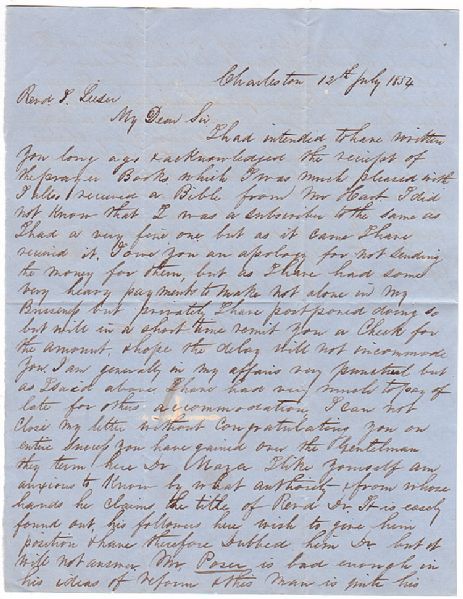 Charleston 12th July 1854
Revd I. Leeser
My Dear Sir
I had intended to have written
you long ago & acknowledged the receipt of
the prayer Books which I was much pleased with
I also received a Bible from Mr Hart I did
not know that I was a subscriber to the same as
I had a very fine one but as it came I have
received it, I owe you an apology for not sending
the money for them, but as I have had some
very heavy payments to make not alone in my
Business but privately I have postponed doing so
but will in a short time remit you a Check for
the amount, & hope the delay will not incommode
you, I am generally in my affairs very punctual but
as I said above I have had very much to pay of
late for others accommodation, I can not
close my letter without Congratulating you on
entire success you have gained over the Gentelman
they term here Dr Mayer I like yourself am
anxious to know by what authority & from whose
hands he claims the title of Revd Dr. It is easely
found out, his followers here wish to give him
position & have therefore Dubbed him Dr but it
will not answer. Mr Poser is bad enough in
his ideas of reform & this man is quite his